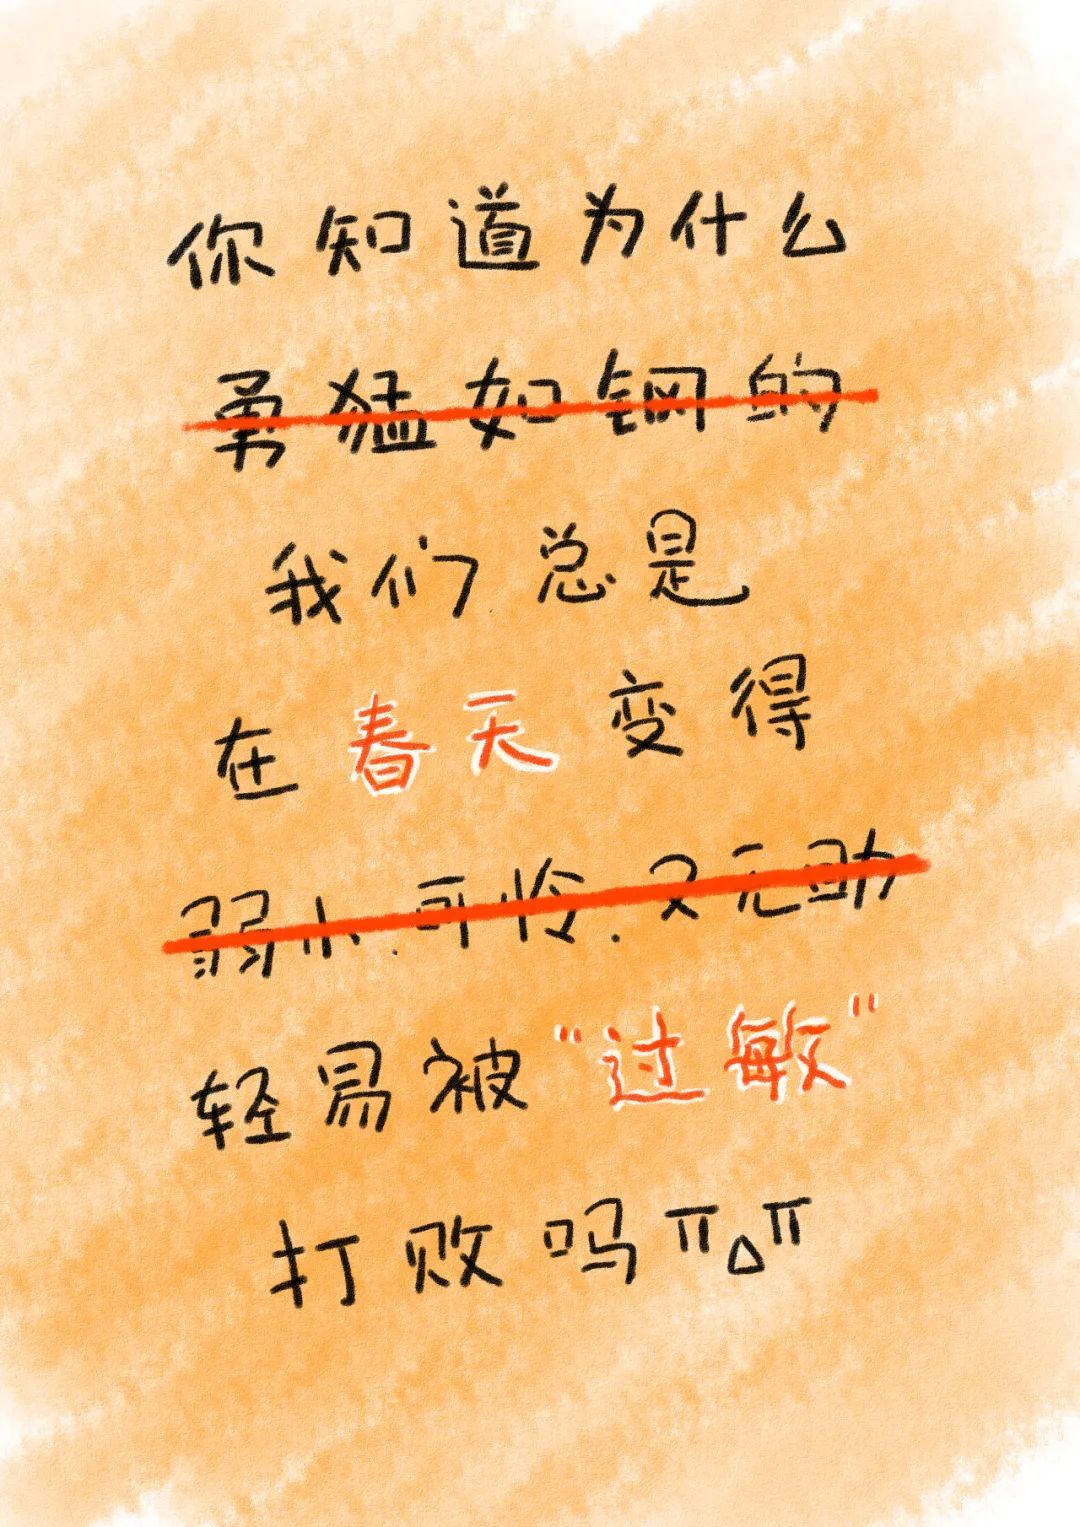 你知道为什么
勇猛如钢的
我们总是
在春天变得
弱小.可怜.又无助
轻易被"过敏"
打败吗ㅠ△ㅠ